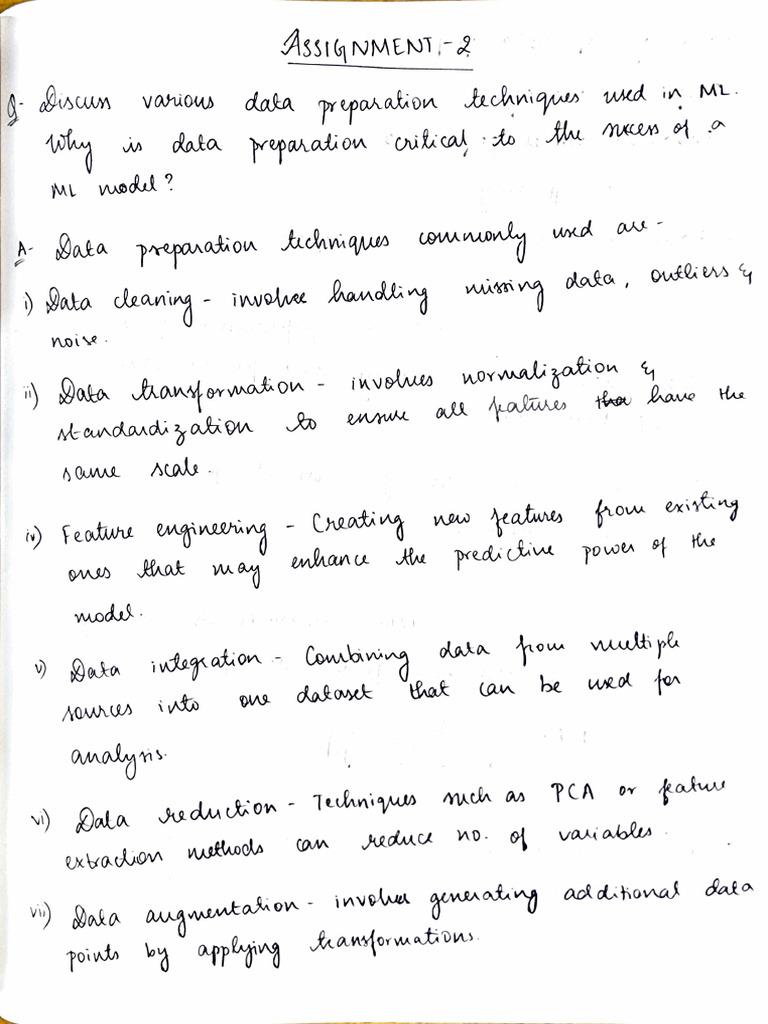 ASSIGNMENT-2
Q- Discuss various data preparation techniques used in ML.
Why is data preparation critical to the success of a
ML model?
A- Data preparation techniques commonly used are-
i) Data cleaning - involves handling missing data, outliers &
noise.
ii) Data transformation - involves normalization &
standardization to ensure all features have the
same scale.
iv) Feature engineering - Creating new features from existing
ones that may enhance the predictive power of the
model.
v) Data integration - Combining data from multiple
sources into one dataset that can be used for
analysis.
vi) Data reduction - Techniques such as PCA or feature
extraction methods can reduce no. of variables.
vii) Data augmentation - involves generating additional data
points by applying transformations.